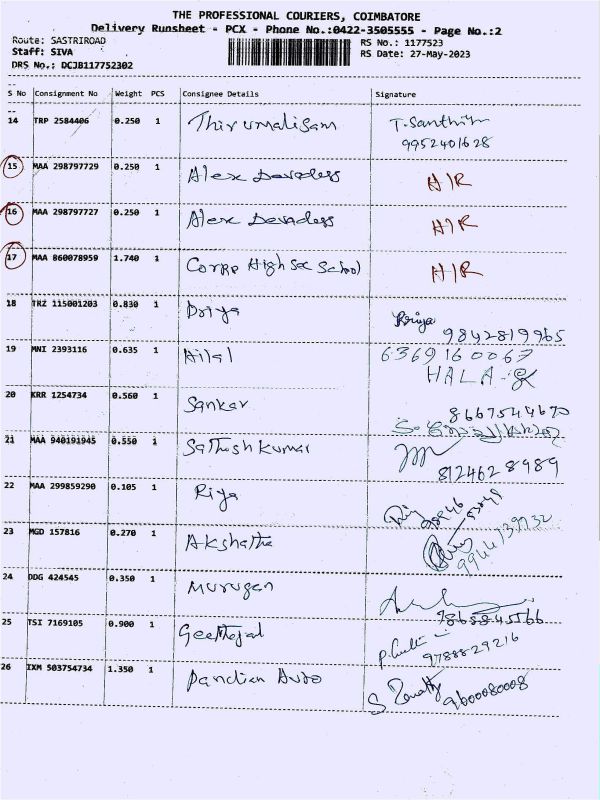 THE PROFESSIONAL COURIERS, COIMBATORE
Delivery Runsheet - PCX - Phone No.:0422-3505555 - Page No.:2
Route: SASTRIROAD RS No.: 1177523
Staff: SIVA RS Date: 27-May-2023
DRS No.: DCJB117752302
S No Consignment No Weight PCS Consignee Details Signature
14 TRP 2584406 0.250 1 Thirumalisam T.Santhi
9952401628
15 MAA 298797729 0.250 1 Alex Devadoss H/R
16 MAA 298797727 0.250 1 Alex Devadoss H/R
17 MAA 860078959 1.740 1 Corpp High Sec School H/R
18 TRZ 115001203 0.830 1 Priya Priya
9842819965
19 MNI 2393116 0.635 1 Hilal 6369160067
HALA
20 KRR 1254734 0.560 1 Sankar 8667544670
21 MAA 940191945 0.550 1 Sathosh kumar
8124628989
22 MAA 299859290 0.105 1 Riya
23 MGD 157816 0.270 1 Akshatha 9944139932
24 DDG 424545 0.350 1 Murugan
25 TSI 7169105 0.900 1 Geethojal 9788829216
26 IXM 503754734 1.350 1 Pandian Auto 9600080008